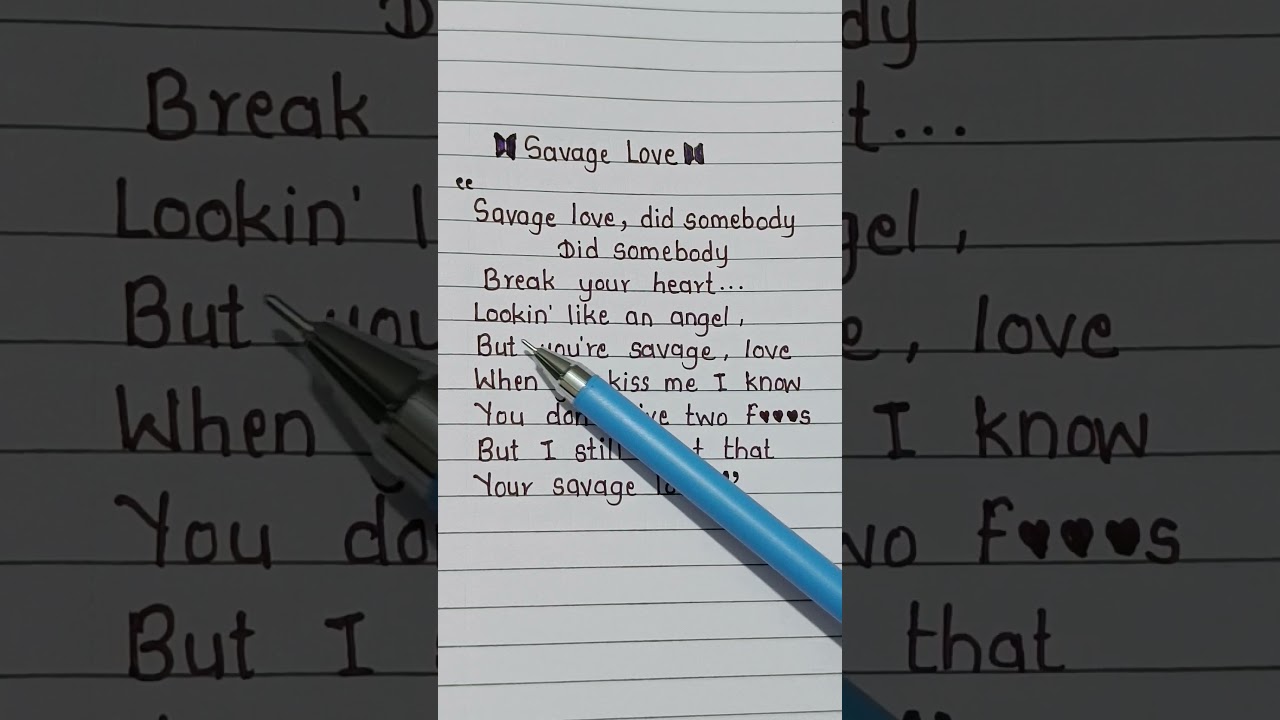 Savage Love
"
Savage love, did somebody
Did somebody
Break your heart...
Lookin' like an angel,
But you're savage, love
When kiss me I know
You two f♥♥♥s
But I still that
Your savage "